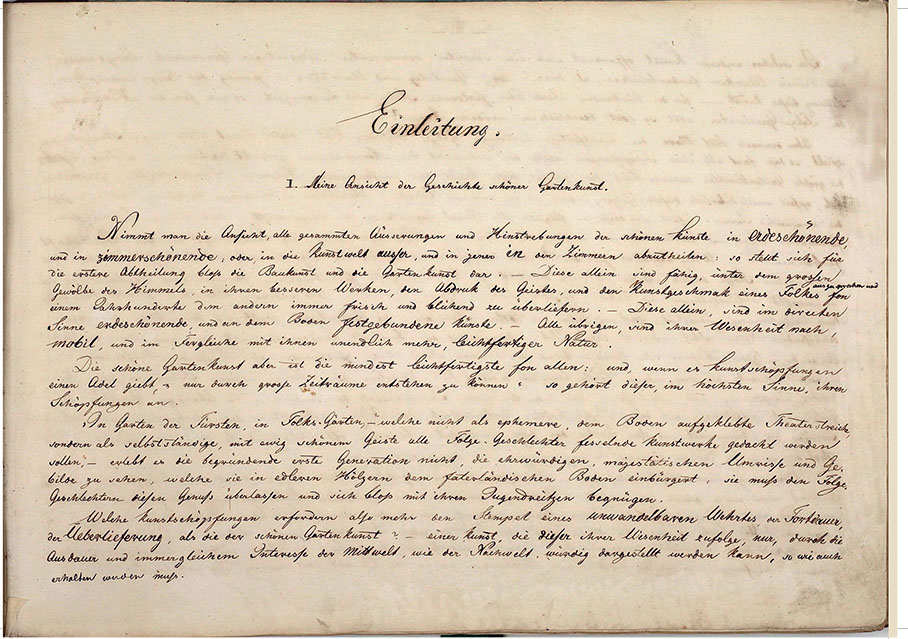 Einleitung.
1. Meine Ansicht der Geschichte schöner Gartenkunst.
Nimmt man die Ansicht, alle gesammten Äusserungen und Hinstrebungen der schönen Künste in erdeschönende,
und in zimmerschönende, oder, in die Kunstwelt ausser, und in jenes in den Zimmern abzutheilen: so stellt sich für
die erstere Abtheilung bloss die Baukunst und die Gartenkunst dar. — Diese allein sind fähig, unter dem grossen
Gewölbe des Himmels, in ihren besseren Werken, den Abdruk des Geistes, und den Kunstgeschmak eines Folkes auszusprechen und fon
einem Jahrhunderte dem andern immer frisch und blühend zu überliefern. — Diese allein, sind im directen
Sinne erdeschönende, und an dem Boden festgebundene Künste. — Alle übrigen, sind ihrer Wesenheit nach,
mobil, und im Fergleiche mit ihnen unendlich mehr, leichtfertiger Natur.
Die schöne Gartenkunst aber ist die mindest leichtfertigste fon allen: und, wenn es Kunstschöpfungen
einen Adel giebt, nur durch grosse Zeiträume entstehen zu können: so gehört dieser, im höchsten Sinne, ihren
Schöpfungen an.
In Gärten der Fürsten, in Folks-Gärten, — welche nicht als ephemere, dem Boden aufgeklebte Theaterstreiche,
sondern als selbstständige, mit ewig schönem Geiste alle Folge-Geschlechter fesselnde Kunstwerke gedacht werden
sollen, — erlebt es die begründende erste Generation nicht, die ehrwürdigen, majestätischen Umrisse und Ge-
bilde zu sehen, welche sie in edleren Hölzern dem faterländischen Boden einbürgert; sie muss den Folge-
Geschlechtern diesen Genuss überlassen und sich bloss mit ihren Jugendreitzen begnügen.
Welche Kunstschöpfungen erfordern also mehr den Stempel eines unwandelbaren Wehrtes, der Fortdauer,
der Ueberlieferung, als die der schönen Gartenkunst? — einer Kunst, die dieser ihrer Wesenheit zufolge, nur, durch die
Ausdauer und immergleichem Interesse der Mitwelt, wie der Nachwelt, würdig dargestellt werden kann, so wie auch
erhalten werden muss.